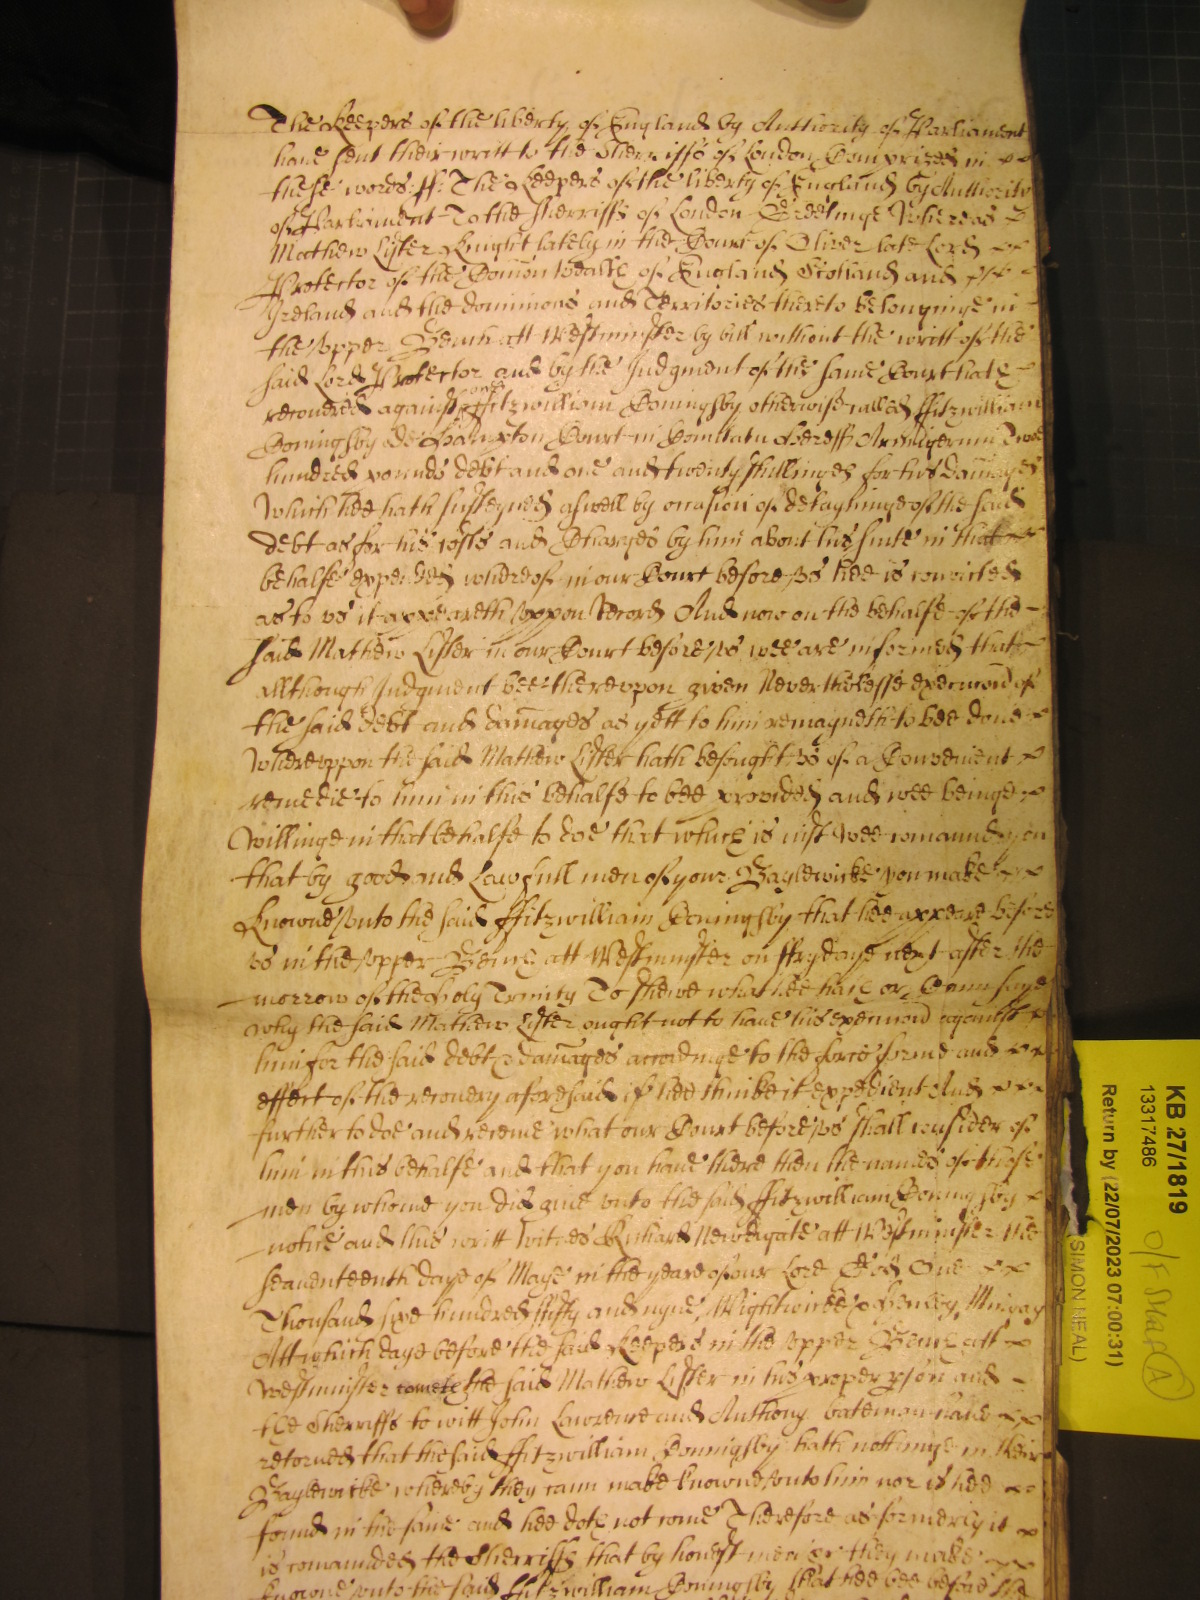 The Keepers of the liberty of England by Authority of Parliament
have sent their writt to the Sherriffs of London Comprized in
these words ss The Keepers of the liberty of England by Authority
of Parliament To the Sherriffs of London Greetinge Whereas
Mathew Lister Knight lately in the Court of Oliver late Lord
Protector of the Comon wealth of England Scotland and
Ireland and the dominions and Territories thereto belonginge in
the upper Bench att Westminster by bill without the writt of the
said Lord Protector and by the Judgment of the same Court hath
recovered against one ffitzwilliam Coningsby otherwise called ffitzwilliam
Coningsby de Hampton Court in Comitatu Hereff Armigerum Two
hundred pounds debt and one and twenty shillinges for his damages
Which hee hath susteyned aswell by occasion of detayninge of the said
debt as for his costs and Charges by him about his suite in that
behalfe expended whereof in our Court before us hee is convicted
as to us it appeareth uppon Record And now on the behalfe of the
said Mathew Lister in our Court before us wee are informed that
allthough Judgment bee thereupon given Neverthelesse execucon of
the said debt and damages as yett to him remayneth to bee done
Whereuppon the said Mathew Lister hath besought us of a Convenient
remedie to him in this behalfe to bee provided and wee beinge
Willinge in that behalfe to doe that which is iust Wee comaund you
that by good and Lawfull men of your Baylewicke you make
Knowne unto the said ffitzwilliam Coningsby that hee appeare before
us in the upper Bench att Westminster on ffryday next after the
morrow of the Holy Trinity To shewe what hee hath or Cann saye
why the said Mathew Lister ought not to have his execucon against
him for the said debt & damages accordinge to the force forme and
effect of the recovery aforesaid if hee thinke it expedient And
further to doe and receive what our Court before us shall consider of
him in this behalfe and that you have there then the names of those
men by whome you did give unto the said ffitzwilliam Coningsby
notice and this writt Witnes Richard Newdigate att Westminster the
seaventeenth daye of Maye in the yeare of our Lord God One
Thousand sixe hundred ffifty and nyne Wightwicke & Henley
Att which daye before the said Keepers in the upper Bench att
Westminster cometh the said Mathew Lister in his proper pson and
the Sherriffs to witt John Lawrence and Anthony bateman have
retorned that the said ffitzwilliam Coningsby hath nothinge in their
Baylewicke whereby they cann make knowne unto him nor is hee
found in the same and hee doth not come Therefore as formerly it
is comaunded the Sherriffs that by honest men &c they make
knowne unto the said ffitzwilliam Coningsby that hee bee before the
KB 27/1819
13317486
Return by (22/07/2023 07:00:31)
(SIMON NEAL)
A